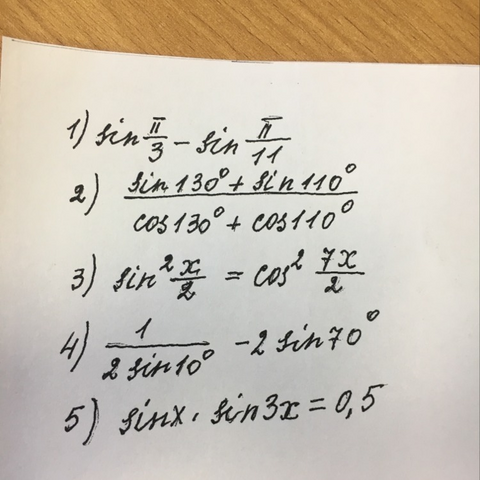 1) sin π/3 − sin π/11
2) (sin 130° + sin 110°)/(cos 130° + cos 110°)
3) sin² x/2 = cos² 7x/2
4) 1/(2 sin 10°) − 2 sin 70°
5) sin x · sin 3x = 0,5